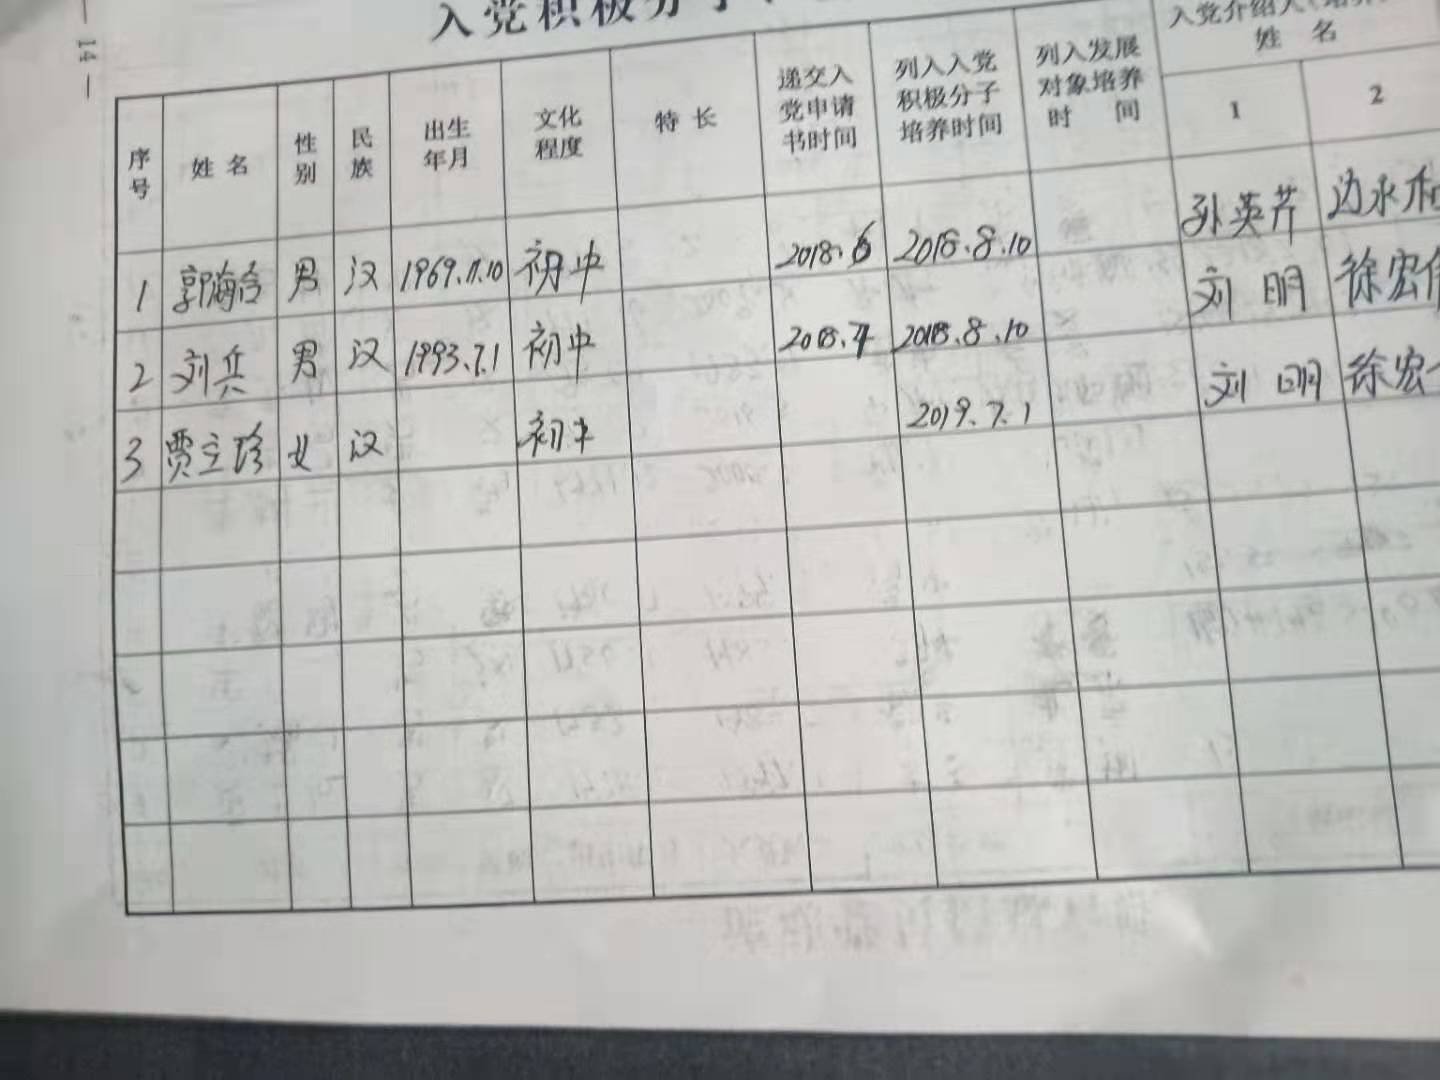 — 14 —
入党积极分子、
序号 姓名 性别 民族 出生年月 文化程度 特长 递交入党申请书时间 列入入党积极分子培养时间 列入发展对象培养时间 入党介绍人(培养 姓名 1 2
1 郭海合 男 汉 1969.11.10 初中 2018.6 2018.8.10 孙英芹 边永
2 刘兵 男 汉 1993.7.1 初中 2018.7 2018.8.10 刘明 徐宏伟
3 贾立珍 女 汉 初中 2019.7.1 刘明 徐宏